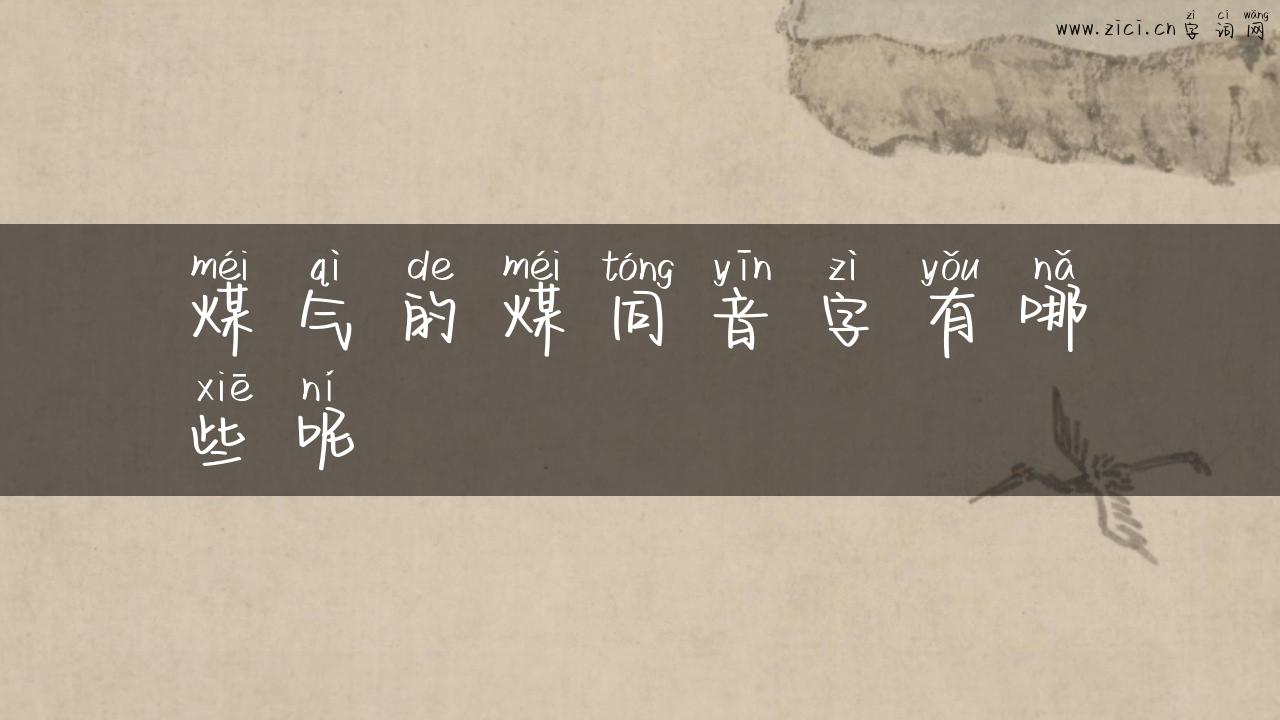 zì cí wǎng
www.zici.cn字词网
méi qì de méi tóng yīn zì yǒu nǎ
煤气的煤同音字有哪
xiē ní
些呢